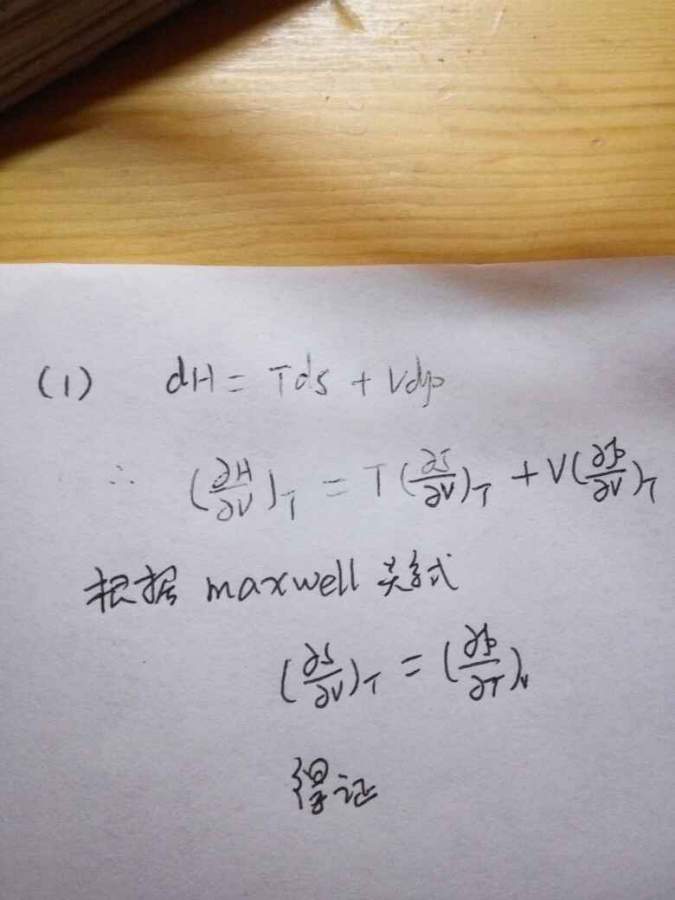 (1) dH = Tds + Vdp
∴ (∂H/∂V)_T = T(∂S/∂V)_T + V(∂p/∂V)_T
根据 maxwell 关系式
(∂S/∂V)_T = (∂p/∂T)_V
得证